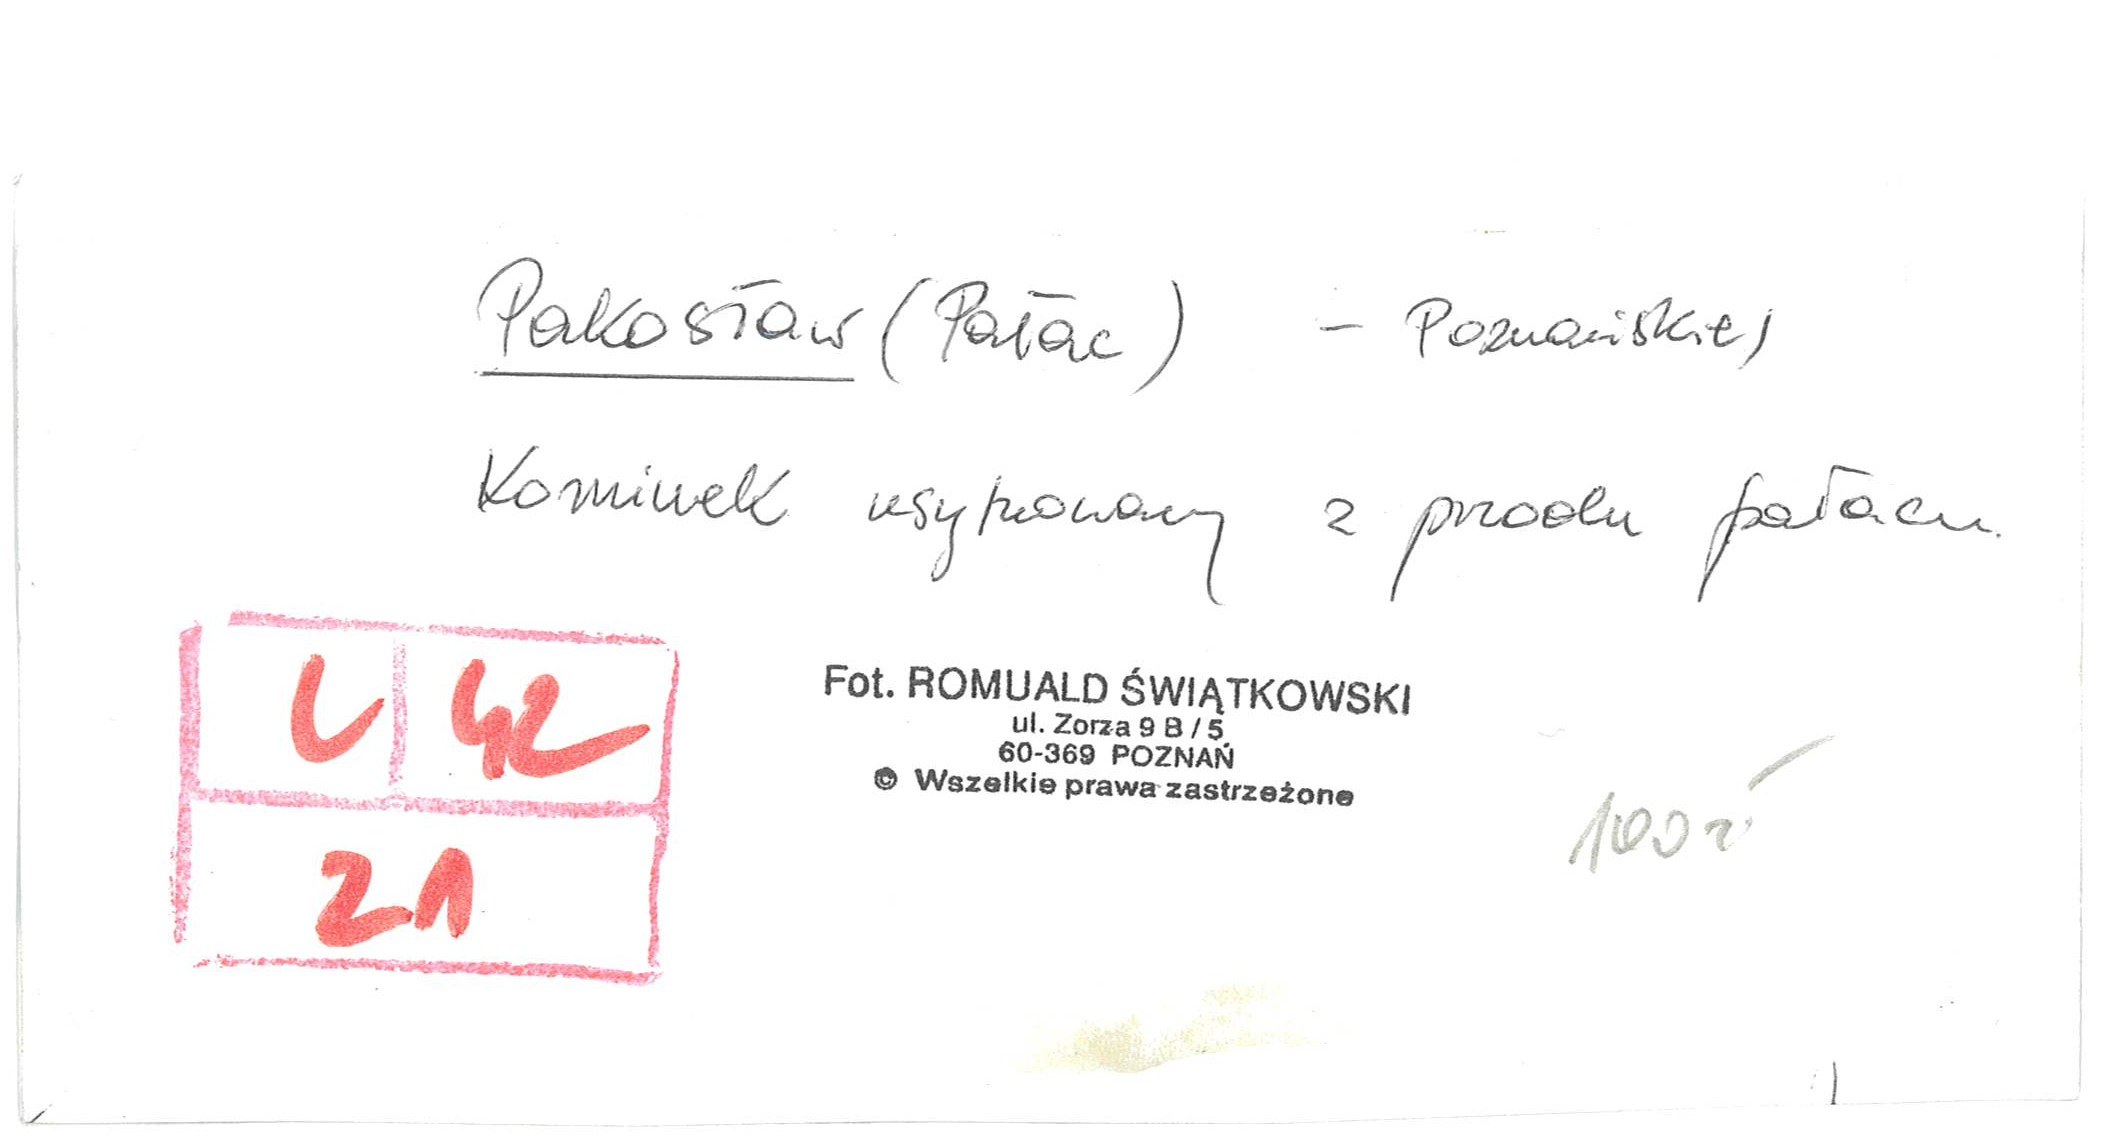 Pakosław (Pałac) – Poznańskie)
Kominek usytuowany z przodu pałacu.
L 42
21
Fot. ROMUALD ŚWIĄTKOWSKI
ul. Zorza 9 B / 5
60-369 POZNAŃ
© Wszelkie prawa zastrzeżone